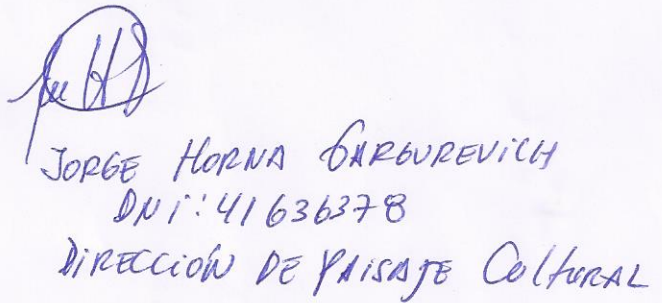 JORGE HORNA GARGUREVICH
DNI: 41636378
DIRECCIÓN DE PAISAJE CULTURAL